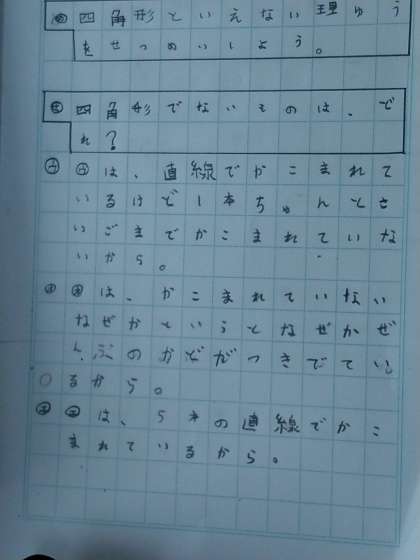 め 四角形といえない理ゆう
をせつめいしよう。
も 四角形でないものは、ど
れ?
は、直線でかこまれて
いるけど1本ちゃんとさ
いごまでかこまれていな
いから。
は、かこまれていない
なぜかというとなぜかぜ
んぶのかどがつきでてい
るから。
は、5本の直線でかこ
まれているから。